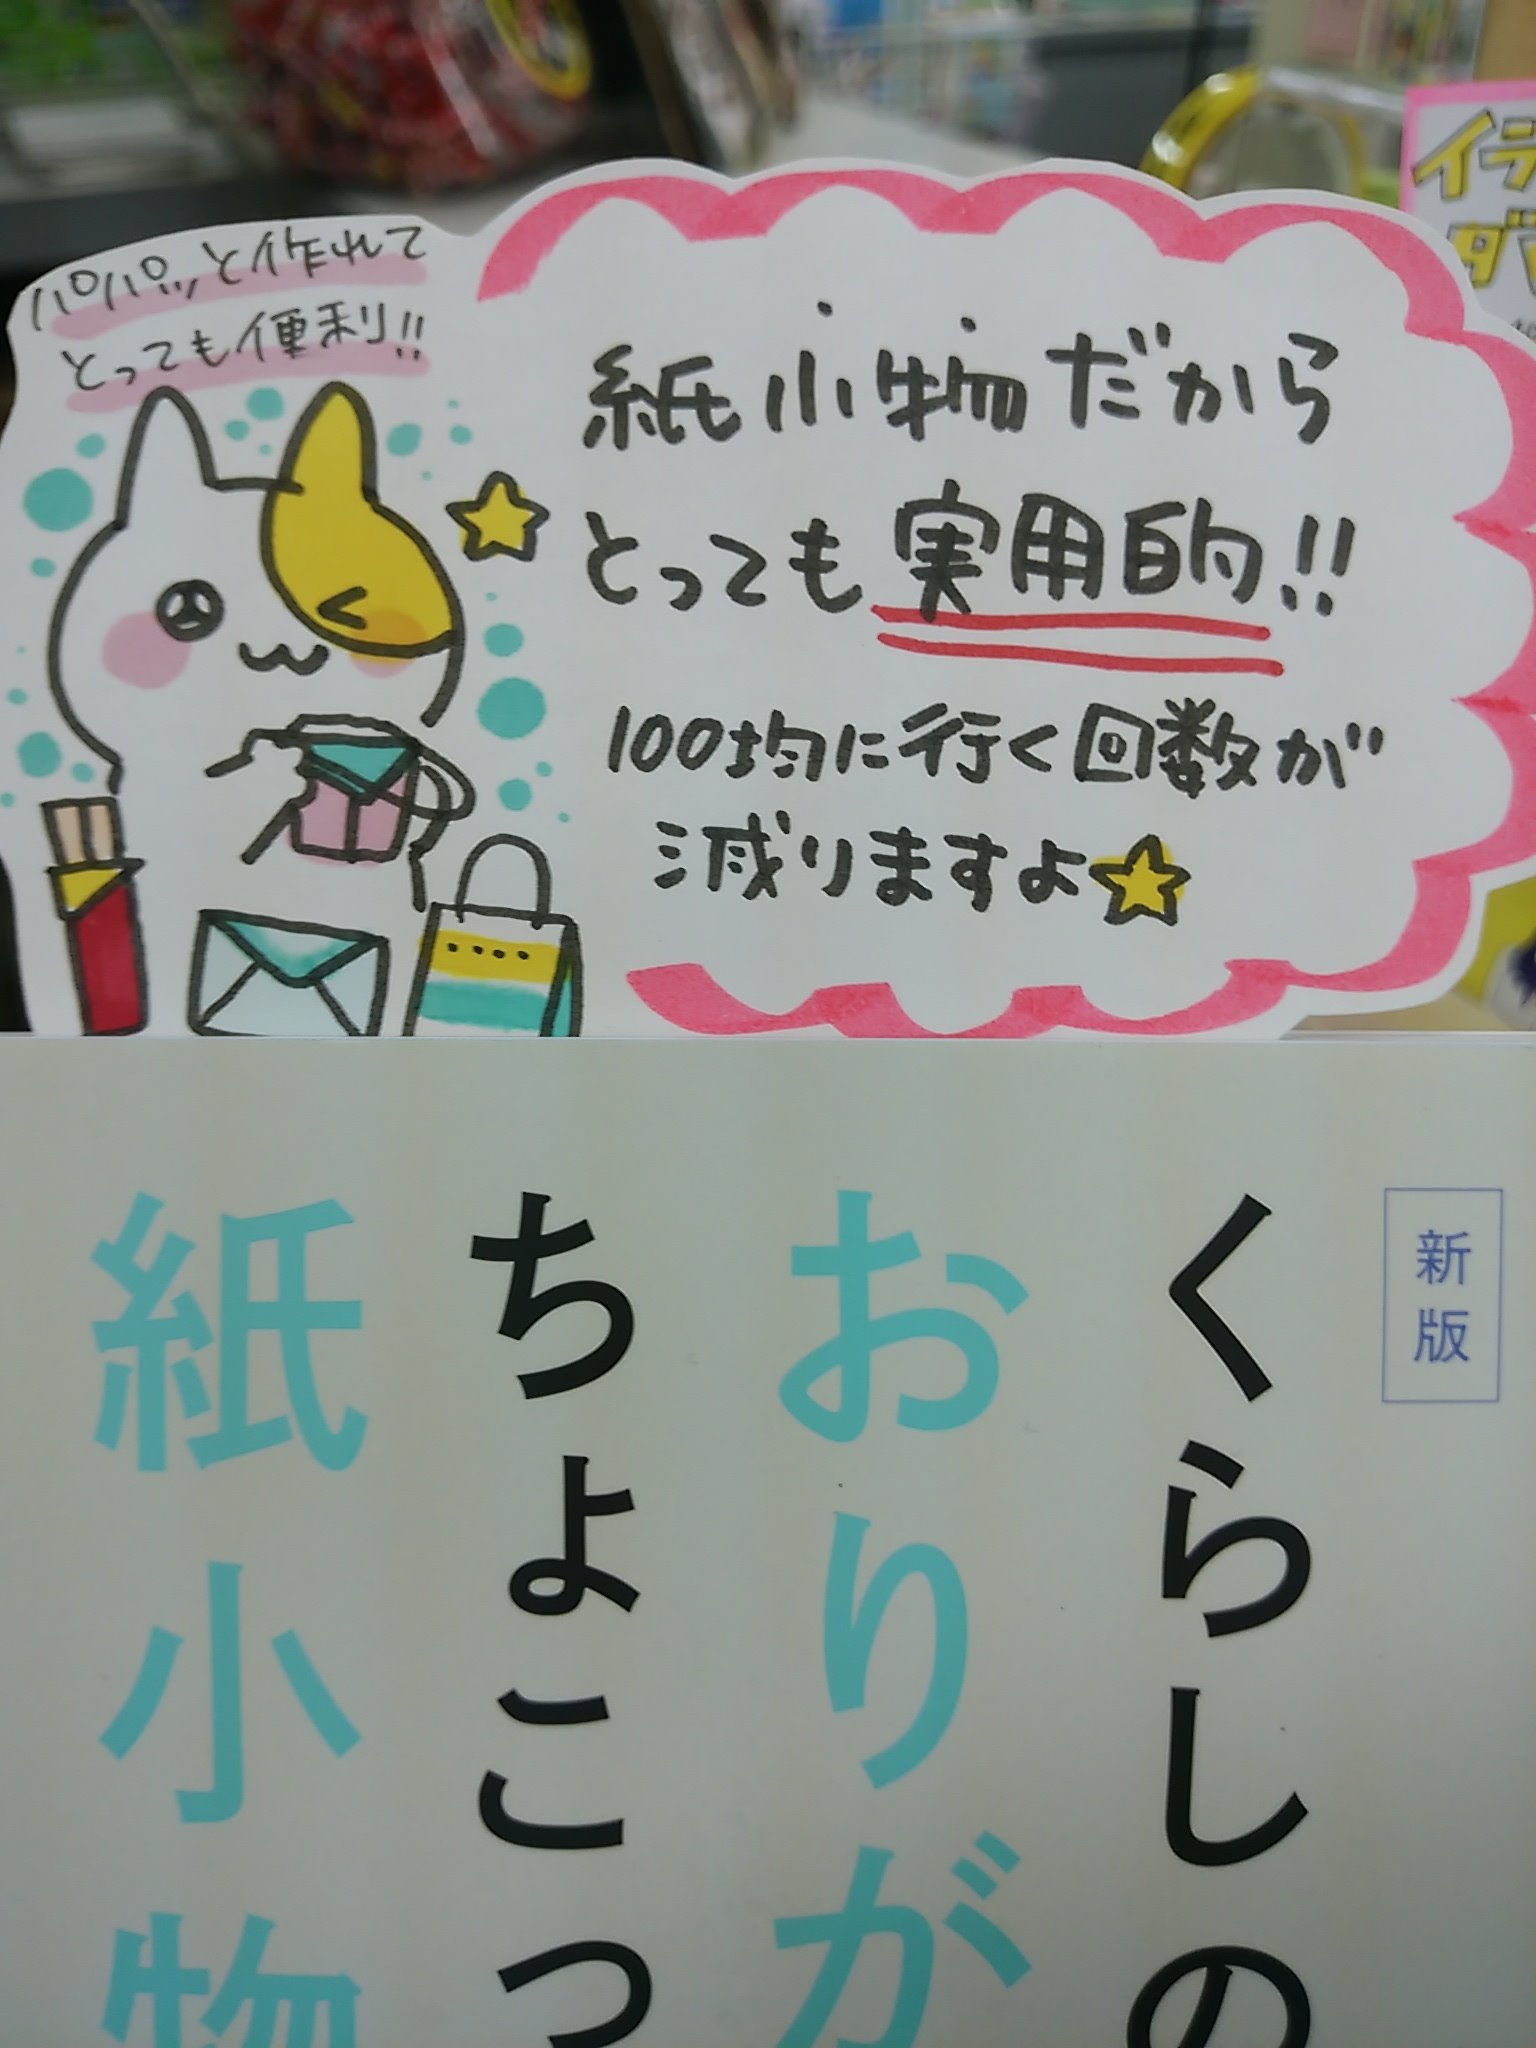 パパッと作れて
とっても便利!!
紙小物だから
とっても実用的!!
100均に行く回数が
減りますよ
イラ
ダマ
新版
くらしの
おりが
ちょこっ
紙小物